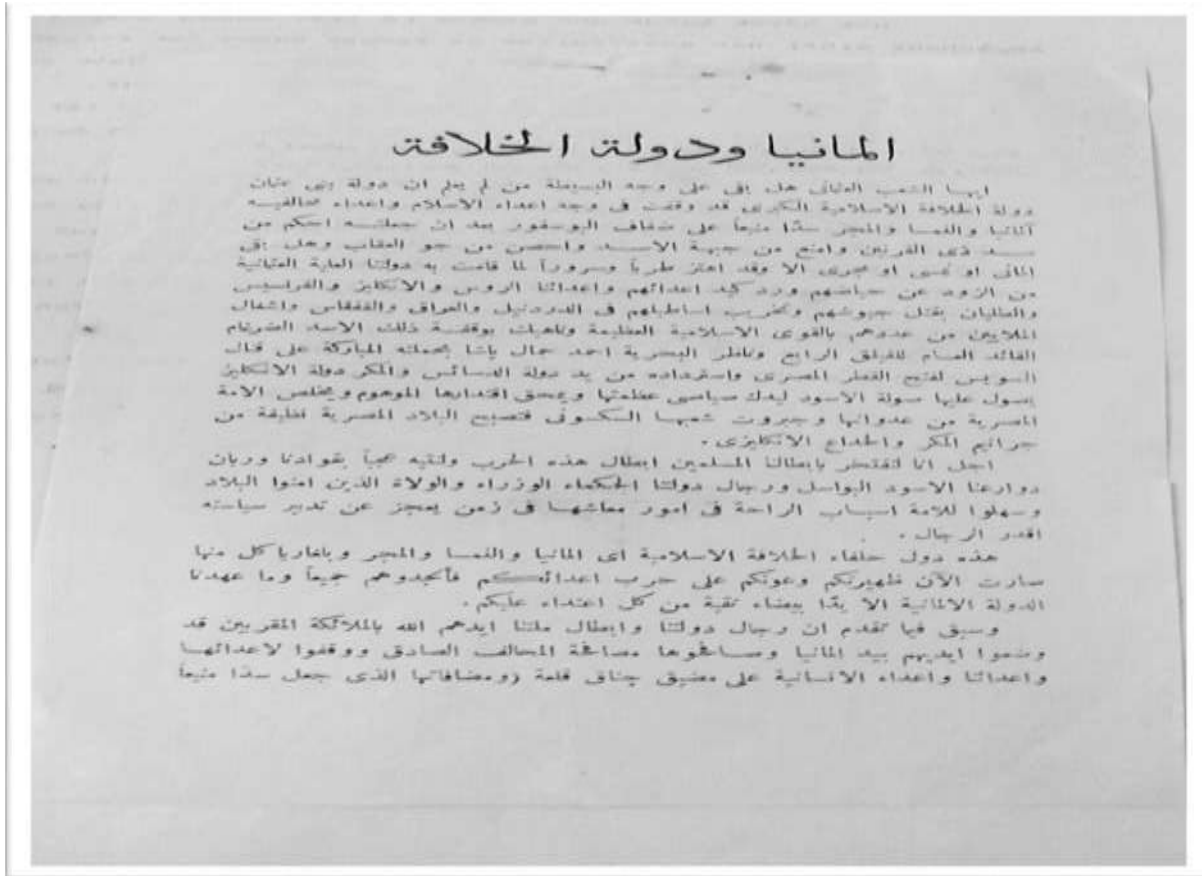 المانيا ودولة الخلافة
ايها الشعب العثماني هل بقي على وجه البسيطة من لم يعلم ان دولة بني عثمان
دولة الخلافة الاسلامية الكبرى قد وقفت في وجه اعداء الاسلام واعداء محالفيه
آلمانيا والنمسا والمجر سدًا منيعاً على ضفاف البوسفور بعد ان جعلته احكم من
سد ذي القرنين وامنع من جبهة الاسد واحصن من جو العقاب وهل بقي
الماني او نمسي او مجري الا وقد اهتز طرباً وسروراً لما قامت به دولتنا العلية العثمانية
من الزود عن حياضهم ورد كيد اعدائهم واعدائنا الروس والانكليز والفرنسيس
والطليان بقتل جيوشهم وتخريب اساطيلهم في الدردنيل والعراق والقفقاس واشغال
الملايين من عدوهم بالقوى الاسلامية العظيمة وناهيك بوقفة ذلك الاسد الضرغام
القائد العام للفيلق الرابع وناظر البحرية احمد جمال باشا بحملته المباركة على قنال
السويس لفتح القطر المصري واسترداده من يد دولة الدسائس والمكر دولة الانكليز
يصول عليها صولة الاسود ليدك صياصي عظمتها ويمحق اقتدارها الموهوم ويخلص الامة
المصرية من عدوانها وجبروت شعبها السكسوني فتصبح البلاد المصرية نظيفة من
جراثيم المكر والخداع الانكليزي .
اجل انا لنفتخر بابطالنا المسلمين ابطال هذه الحرب ولنتيه عجباً بقوادنا وربان
دوارعنا الاسود البواسل ورجال دولتنا الحكماء الوزراء والولاة الذين امنوا البلاد
وسهلوا للامة اسباب الراحة في امور معاشها في زمن يعجز عن تدبير سياسته
اقدر الرجال .
هذه دول حلفاء الخلافة الاسلامية اي المانيا والنمسا والمجر وبلغاريا كل منها
صارت الآن ظهيرتكم وعونكم على حرب اعدائكم فأنجدوهم جميعاً وما عهدنا
الدولة الالمانية الا يدًا بيضاء نقية من كل اعتداء عليكم .
وسبق فيما تقدم ان رجال دولتنا وابطال ملتنا ايدهم الله بالملائكة المقربين قد
وضعوا ايديهم بيد المانيا وصافحوها مصافحة المحالف الصادق ووقفوا لاعدائها
واعدائنا واعداء الانسانية على مضيق چناق قلعة (ومضافاتها الذي جعل سدا منيعاً